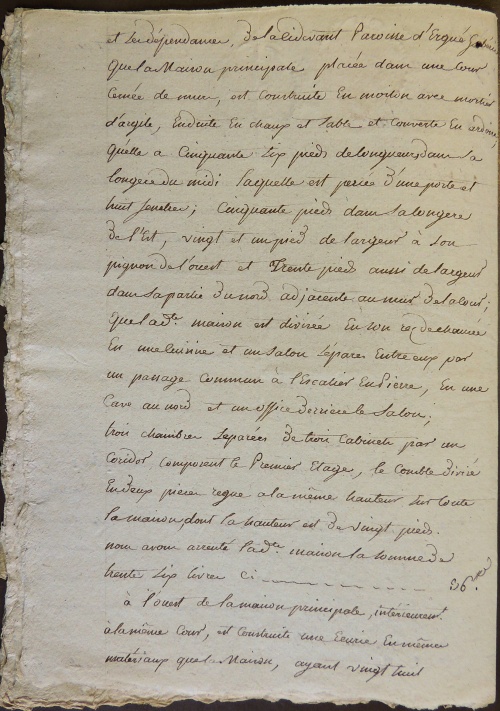 et ses dépendances, de la cidevant Paroisse d'Ergué Gabéric
Que la Maison principale placée dans une Cour
Cernée de murs, est Construite En moilon avec mortier
d'argile, Enduite En chaux et Sable et Couverte En ardoise,
qu'elle a Cinquante Six pieds de longueur dans Sa
longere du midi laquelle est percée d'une porte et
huit fenetres; Cinquante pieds dans Sa longere
de l'Est, vingt et un pieds de largeur à Son
pignon de l'ouest et Trente pieds aussi de largeur
dans la partie du nord adjacente au mur de la Cour;
Que lad.te maison est divisée En son rez de chaussée
En une Cuisine et un Salon Séparés Entre eux par
un passage Commun à l'Escalier En Pierre, En une
Cave au nord et un office derriere le Salon;
trois chambres Séparées de trois Cabinets par un
Coridor Composent le Premier Etage, le Comble divisé
En deux pieces regne a la même hauteur Sur toute
la maison, dont la hauteur est de vingt pieds.
nous avons arrenté lad.te maison la Somme de
trente Six livres Ci 36
à l'ouest de la maison principale, intérieurem.t
à la même Cour, est Construite une Ecurie En mêmes
matériaux que la Maison, ayant vingt huit